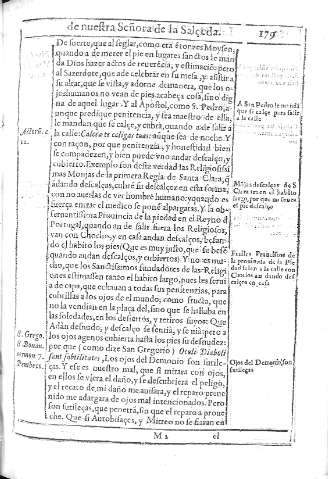 de nuestra Señora de la Salçeda. 179
De suerte, que al seglar, como era entonces Moysen,
quando a de meter el pie en lugares sanctos le man
da Dios hazer actos de reuerẽcia, y estimaciõ: pero
al Sacerdote, que a de celebrar en su mesa, y assistir a
su altar, que se vista, y adorne de manera, que los o-
jos humanos no vean de pies a cabeça cosa, sino dig
na de aquel lugar. Y al Apostol, como S. Pedro, a-
unque predique penitencia, y sea maestro de ella,
le mandan que se calçe, y cubra, quando aya de salir a
la calle: Calcea te caligas tuas: aũque sea de noche Y
con razon, por que penitencia, y honestidad bien
se compadezen, y bien puede vno andar descalço, y
cubierto. Exemplo son desta verdad las Religiosissi
mas Monjas de la primera Regla de Sancta Clara, q̃
andando descalças, cubrẽ su descalcez en esta forma,
con no auerlas de ver hombre humano: y quando es
fuerça entrar el medico se ponẽ alpargatas. Y la ob-
seruantissima Prouincia de la piedad en el Reyno de
Portugal, quando an de salir fuera los Religiosos,
van con Choclos, y en casa andan descalços, besan-
do el habito los pies (Que es muy justo, que se bese)
quando andan descalços, y cubiertos. Y no es mu-
cho, que los Sanctissimos fundadores de las Religi
ones estimassen tanto el habito largo, pues les seruia
de capa, que echauan a todas sus penitencias, para
cubrillas a los ojos del mundo; como studia, que
no la vendian en la plaça del, sino que se hallaua en
las soledades, en los desiertos, y retiros suyos: Que
Adan desnudo, y descalço se sentia, y se via: pero a
los ojos agenos cubierta hasta los pies su desnudez:
por que (como dize San Gregorio) Oculi Diaboli
sunt subtilitates, Los ojos del Demonio son sutile-
zas. Y es en nuestro mal, que si mirara con ojos,
en ellos se viera el daño, y se descubriera el peligro,
y el recato de mi daño me auisara, y el reparo preue
nido me adargara de ojos mal intencionados. Pero
son sutileças, que penetrã, sin que el reparo a proue
che. Que si Autobisaçes, y Mitreo no se fiaran en
M 2 el
Actorũ.
12.
S. Grego.
S. Bonau.
sermon 7.
Penthecs.
A San Pedro le mandã
que se calçe para salir
a la calle
Monjas descalças de S
Clara traen el habito
largo, por que no se vea
el pie descalço
Frailes Franciscos de
la prouincia de la Pie
dad salen a la calle con
Choclos an dando des
calços en casa
Ojos del Demonio, son
sutileças